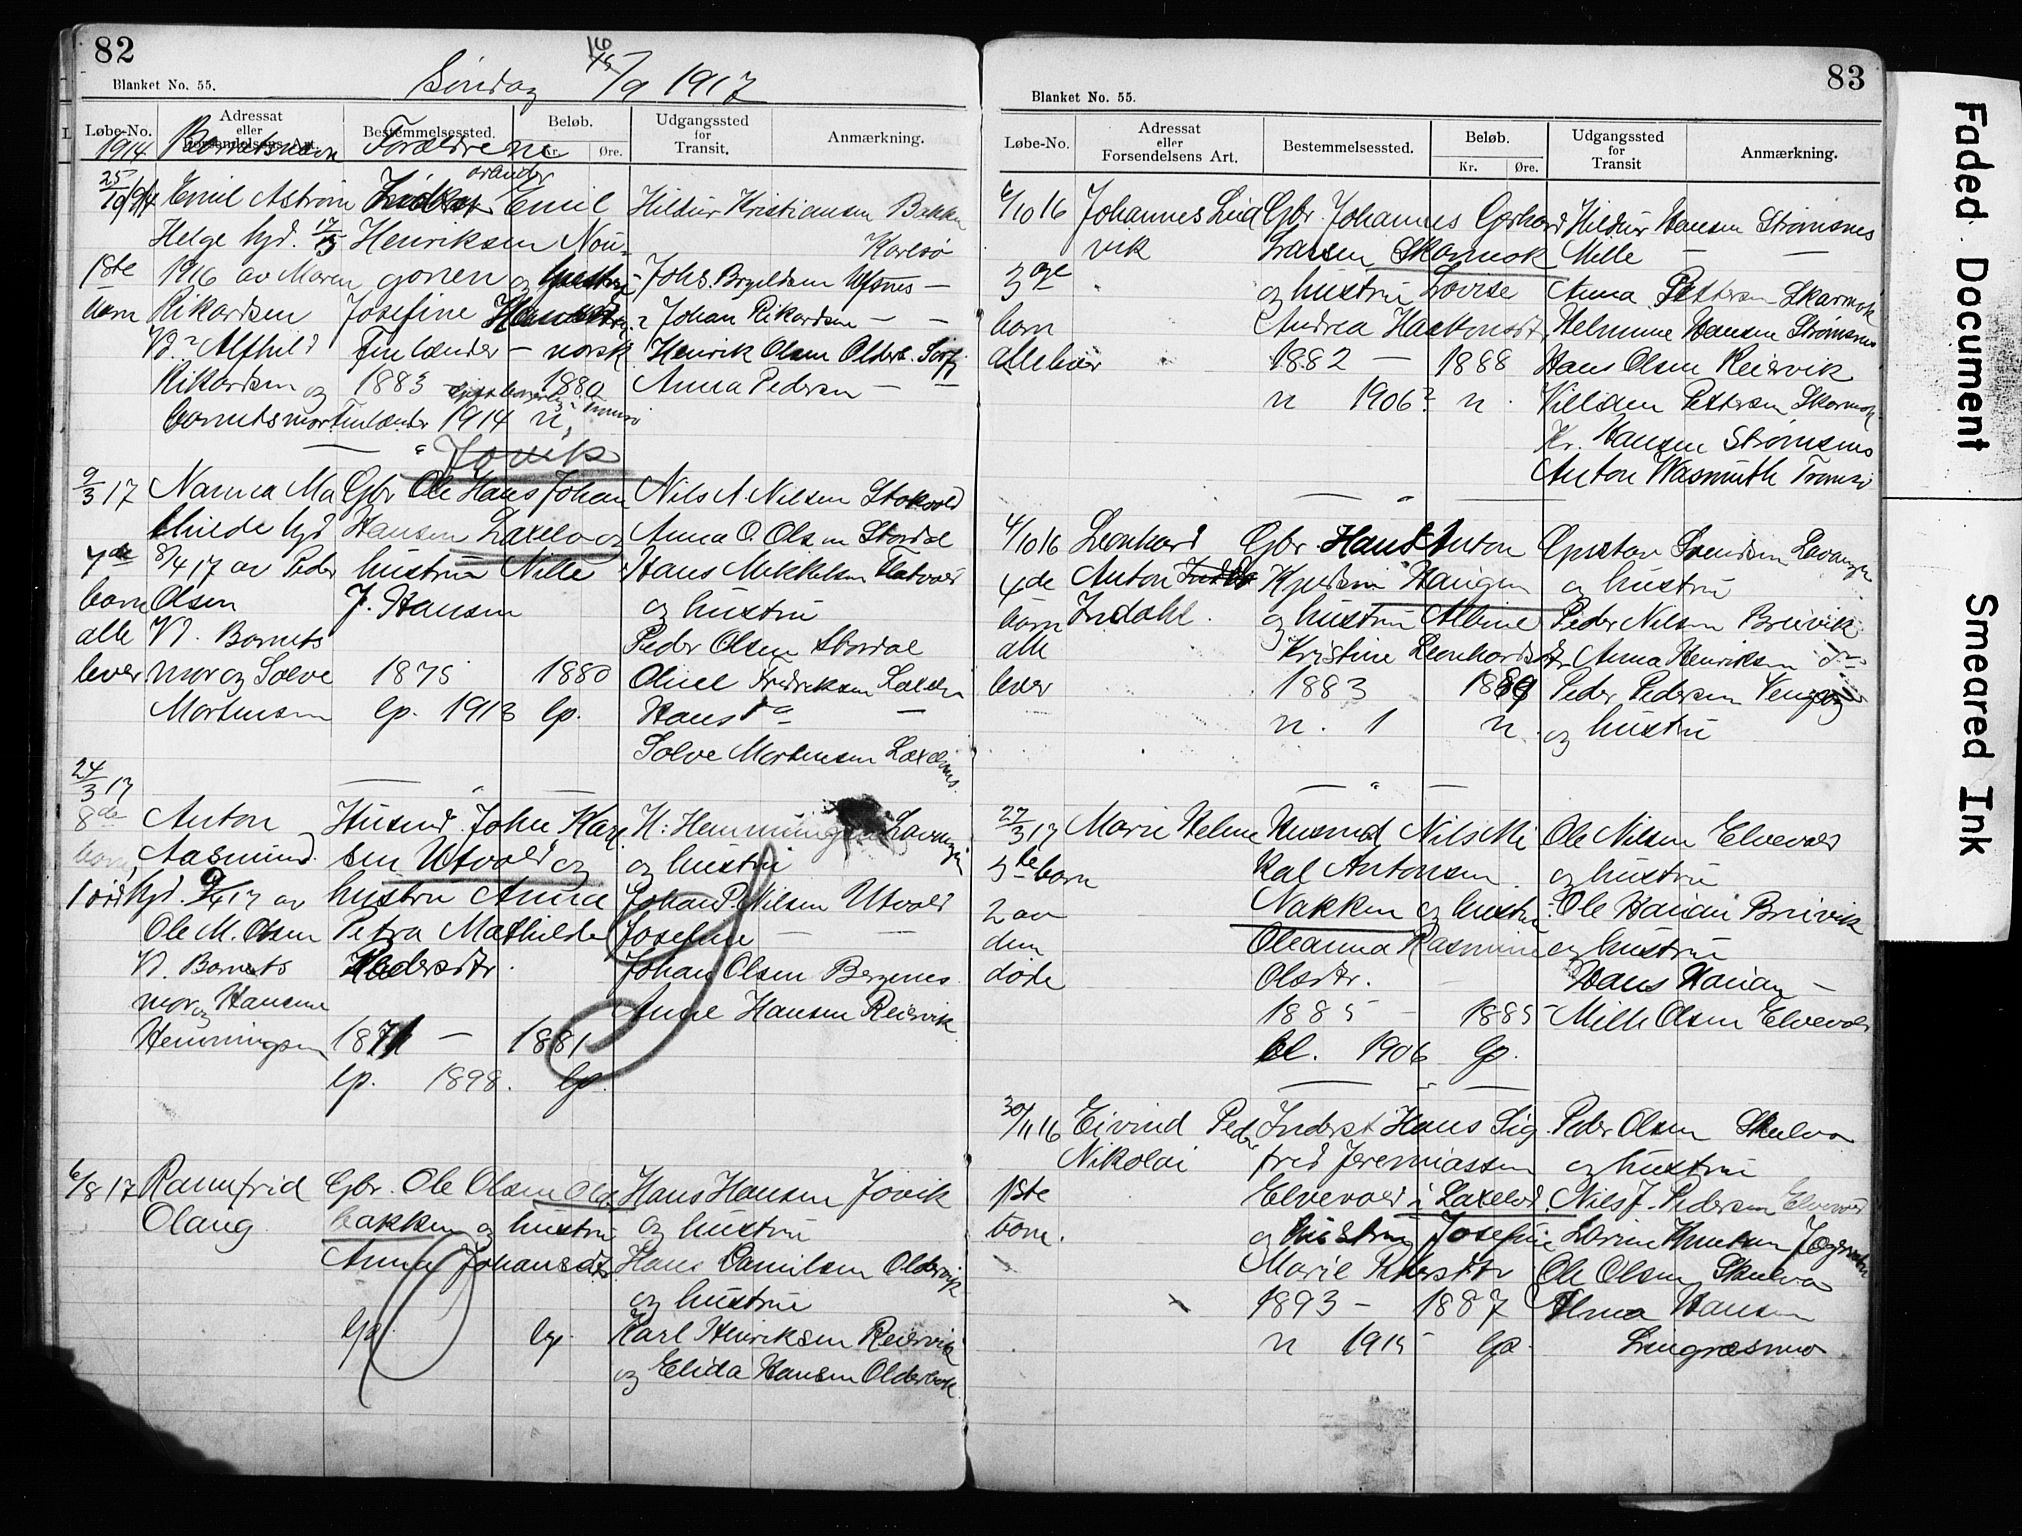 82
Blanket No. 55.
Søndag 16/9 1917
Løbe-No.
Adressat
eller
Forsendelsens Art.
Bestemmelsessted.
Beløb.
Kr.
Øre.
Udgangssted
for
Transit.
Anmærkning.
1914 Barnets navn Forældrene
25/10 1914 Emil Astrøm Emil Hildur Kristiansen Bakken
Helge hjd. Henriksen Nou- Karlsø
1ste 1916 av Maren gonen og hustru Johs. Brynildsen Ufsnes —
barn Rikardsen Josefine Johan Rikardsen — —
V. Alfhild Finlænder — norsk Henrik Olsen Olderb. Sørfj.
Rikardsen og 1883 1880 Anna Pedersen — —
barnets mor Finlænder 1914 n. Tromsø
— " Jøvik
9/3 17 Nanna Ma Gbr Ole Hans Johan Nils A. Nilsen Stokvold
thilde hjd Hansen Laxelv og Anna O. Olsen Stordal
7de 8/4 17 av Peder hustru Nille Hans Mikkelsen Flatvold
barn Olsen J. Hansen og hustru
alle V. Barnets Peder Olsen Stordal
lever mor og Solve 1875 1880 Oluel Fredriksen Laxelv
Mortensen lp. 1913 lp. Hans do —
Solve Mortensen Laxelvnes.
24/3 17 — " —
8de Anton Husmd. John Karl H. Hemmingsen Lavangen
barn, Aasmund. sen Utvold og og hustru
1 død hjd. 9/4 17 av hustru Anna Johan P. Nilsen Utvold
Ole M. Olsen Petra Mathilde Josefine — —
V. Barnets Pedersdtr. Johan Olsen Bergenes
mor og Hansine Anne Hansen Reiervik
Hemmingsen 1871 — 1881
lp. 1898. lp.
6/8 17 Rannfrid Gbr. Ole Olsen Older Hans Hansen Jøvik
Olaug bakken og hustru og hustru
Anna Johansdtr. Hans Danielsen Oldervik
og hustru
lp. lp. Karl Henriksen Reiervik
og Elida Hansen Olderbak.
83
Blanket No. 55.
Løbe-No.
Adressat
eller
Forsendelsens Art.
Bestemmelsessted.
Beløb.
Kr.
Øre.
Udgangssted
for
Transit
Anmærkning.
6/10 16 Johannes Lud Gbr. Johannes Gerhard Hildur Hansen Strømsnes
vik Larsen Skarmok Mille — —
3dje og hustru Lovise Anna Pettersen Skarmok
barn Andrea Haakonsdtr. Helmine Hansen Strømsnes
alle lever 1882 — 1888 Hans Olsen Reiervik
n 1906? n. Villam Pettersen Skarmok
Kr. Hansen Strømsnes
Anton Wasmuth Tromsø
— " —
4/10 16 Leonhard Gbr Hans Anton Gustav Svendsen Lavangen
4de Anton Kjeldsen Haugen og hustru
barn Indahl. og hustru Albine Peder Nilsen Breivik
alle Kristine Leonhardsdtr. Anna Henriksen do
lever 1883 1889 Peder Pedersen
n. 1 n. og hustru
— " —
27/3 17 Marie Helene Husmd Nils Mi Ole Nilsen Elvevold
5te barn kal Antonsen og hustru
2 av Nakken og hustru Ole Hansen Breivik
dem Oleanna Rasmine og hustru
døde Olsdtr. Hans Hansen —
1885 — 1885 Mille Olsen Elvevold
bl. 1906 lp.
— " —
30/11 16 Eivind Peder Inderst Hans Sig Peder Olsen Skulva
Nikolai fred Jeremiassen og hustru
1ste Elvevold i Laxelvd. Nils J. Pedersen Elvevold
barn. og hustru Josefine Knutsen
Marie Pedersdtr Ole Olsen Skulva
1893 — 1887 Alma Hansen
n 1915 lp. Lyngræsmo
Faded Document
Smeared Ink